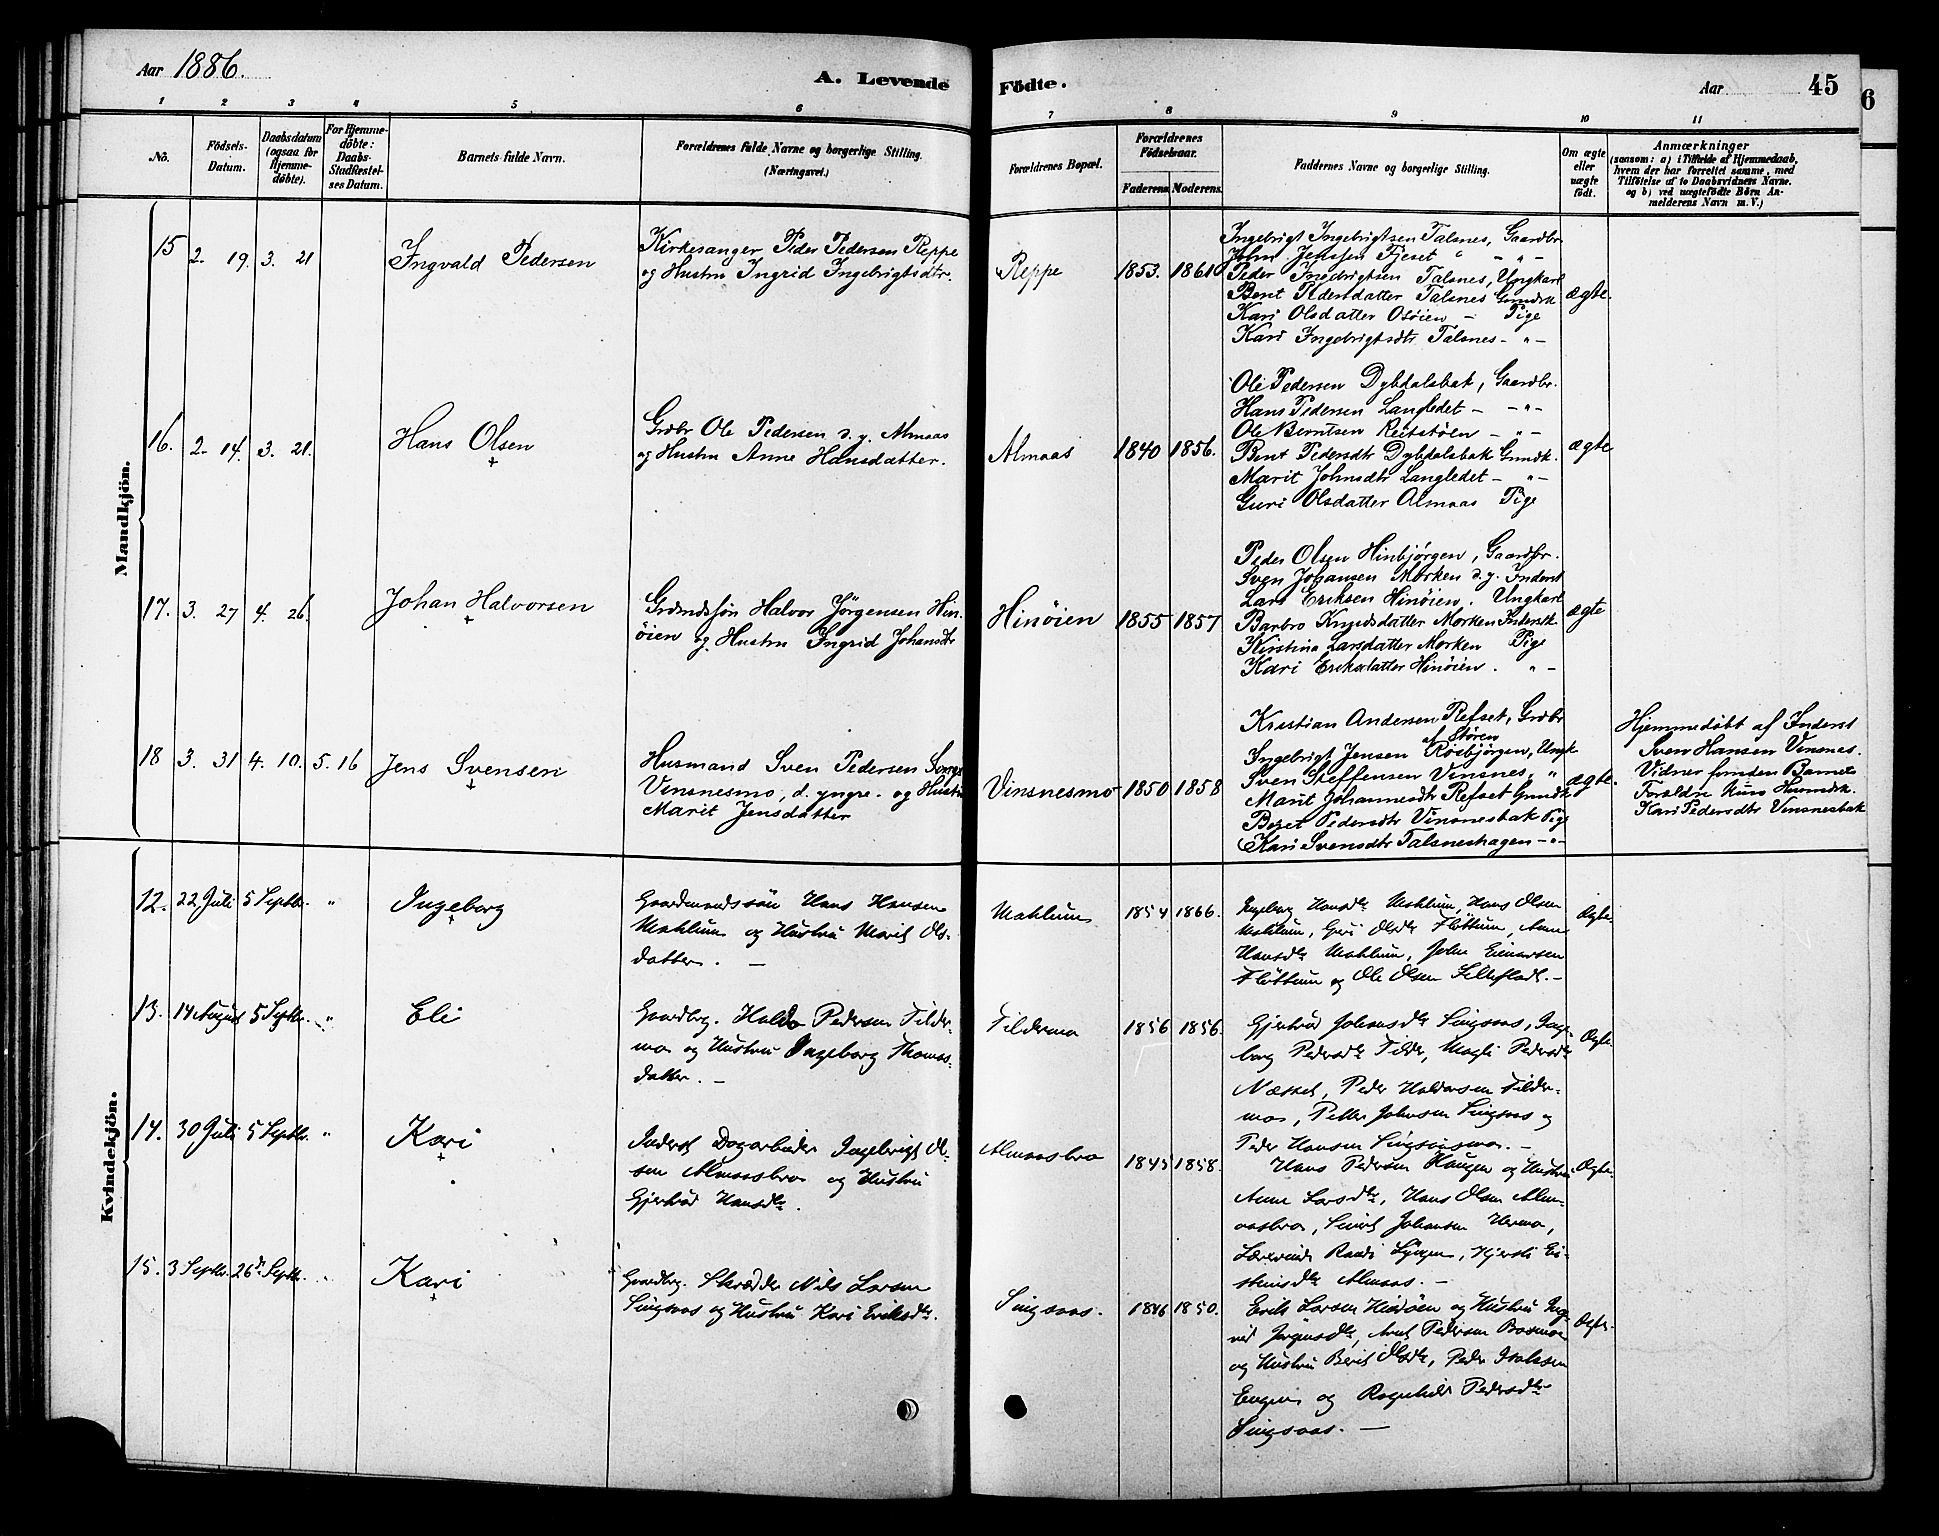 Aar 1886.
A. Levende Födte.
Aar
45
6
1 2 3 4 5 6 7 8 9 10 11
No.
Födsels-
Datum.
Daabsdatum
(ogsaa for
Hjemme-
döbte).
For Hjemme-
döbte:
Daabs-
Stadfæstel-
ses Datum.
Barnets fulde Navn.
Forældrenes fulde Navne og borgerlige Stilling.
(Næringsvei.)
Forældrenes Bopæl.
Forældrenes
Födselsaar.
Faderens. Moderens.
Faddernes Navne og borgerlige Stilling.
Om ægte
eller
uægte
födt.
Anmærkninger
(saasom: a) i Tilfælde af Hjemmedaab,
hvem der har forrettet samme, med
Tilföielse af to Daabsvidners Navne.
og b) ved uægtefödte Börn An-
melderens Navn m. V.)
Mandkjön.
15 2. 19. 3. 21
Ingvald Pedersen
Kirkesanger Peder Pedersen Reppe
og Hustru Ingrid Ingebrigtsdtr.
Reppe
1853. 1861
Ingebrigt Ingebrigtsen Talsnes, Gaardbr.
John Jenssen Fjeset " - " -
Peder Ingebrigtsen Talsnes, Ungkarl
Berit Pedersdatter Talsnes Gmdsk
Kari Olsdatter Osöien - Pige
Kari Ingebrigtsdtr Talsnes - " -
ægte.
16. 2. 14. 3. 21.
Hans Olsen
+
Grdbr Ole Pedersen d. y. Almaas
og Hustru Anne Hansdatter.
Almaas
1840 1856.
Ole Pedersen Dybdalsbak, Gaardbr.
Hans Pedersen Langledet - - " -
Ole Berntsen Reitstöen - " -
Berit Pedersdtr Dybdalsbak Gmdk.
Marit Johnsdtr Langledet - " -
Guri Olsdatter Almaas Pige
ægte
17. 3. 27 4. 26.
Johan Halvorsen
+
Grdmdssön Halvor Jörgensen Hin-
öien og Hustru Ingrid Johansdtr
Hinöien
1855 1857
Peder Olsen Hinbjörgen, Gaardbr.
Sven Johansen Morken d. y. Inderst
Lars Eriksen Hinöien. Ungkarl
Barbro Knudsdatter Morken Inderstk
Kirstina Larsdatter Morken Pige
Kari Eriksdatter Hinöien. " -
ægte
18 3. 31 4. 10. 5. 16
Jens Svensen
+
Husmand Sven Pedersen
Vinsnesmo, d. yngre. og Hustru
Marit Jensdatter
Vinsnesmo
1850 1858
Kristian Andersen Refset, Grdbr
af Stören
Ingebrigt Jensen Rösbjörgen, Ungk
Sven Steffensen Vinsnes, "
Marit Johannesdtr Refset Gmdk
Beret Pedersdtr Vinsnesbak Pige
Kari Svensdtr Talsneshagen - " -
ægte.
Hjemmedöbt af Inderst
Sven Hansen Vinsnes.
Vidner foruden Barnets
Foraldre Huus Husmdk.
Kari Pedersdtr Vinsnesbak
Kvindekjön.
12. 22 Juli 5 Septbr. "
Ingeborg
+
Gaardmandssön Hans Hansen
Mohlum og Hustru Marit Ols-
datter. -
Mohlum
1854 1866.
Ingeborg Hansdtr Mohlum, Hans Olsen
Mohlum, Guri Olsdtr Flöttum, Anne
Hansdtr Mohlum, John Einarsen
Flöttum og Ole Olsen -
Ægte
13. 14 August 5 Septbr. "
Eli
Gaardbrg. Haldo Pedersen Tilder-
moe og Hustru Ingeborg Thomas-
datter. -
Tildermo
1856 1856.
Gjertrud Johansdtr Singsaas, Inge-
borg Pedersdtr Tilder, Magli Pedersdtr
Næsset, Peder Haldosen Tilder-
moe, Petter Johnsen Singsaas og
Peder Hansen Singsaasmo. -
Ægte.
14. 30 Juli 5 Septbr. "
Kari
+
Inderst Dagarbeider Ingebrigt Ol-
sen Almaasbro og Hustru
Gjertrud Hansdtr.
Almaasbro
1845 1858.
Hans Pedersen Haugen og Hustru
Anne Larsdtr, Hans Olsen Alm-
aasbro, Sivert Johansen
Randi Kjersti
Almaas. -
Ægte.
15. 3 Septbr. 26de Septbr. "
Kari
+
Gaardbrg. Skrædder Nils Larsen
Singsaas og Hustru Kari Eriksdtr.
Singsaas.
1846 1850.
Erik Larsen Hindöen og Hustru Ing-
rid Jörgensdtr, Arnt Pedersen Bosmoe
og Hustru Berit Olsdtr, Peder
Engen og Ragnhild Pedersdtr
Singsaas. -
Ægte.